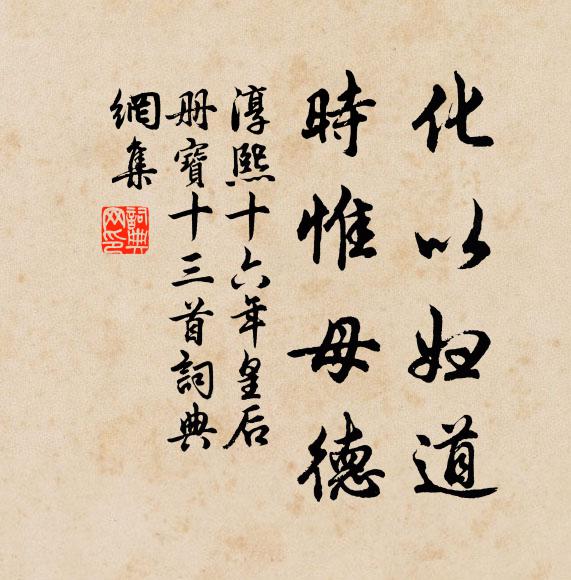 化以妇道
時惟母德
淳熙十六年皇后
册寶十三首詞典
網集
詞典
网印